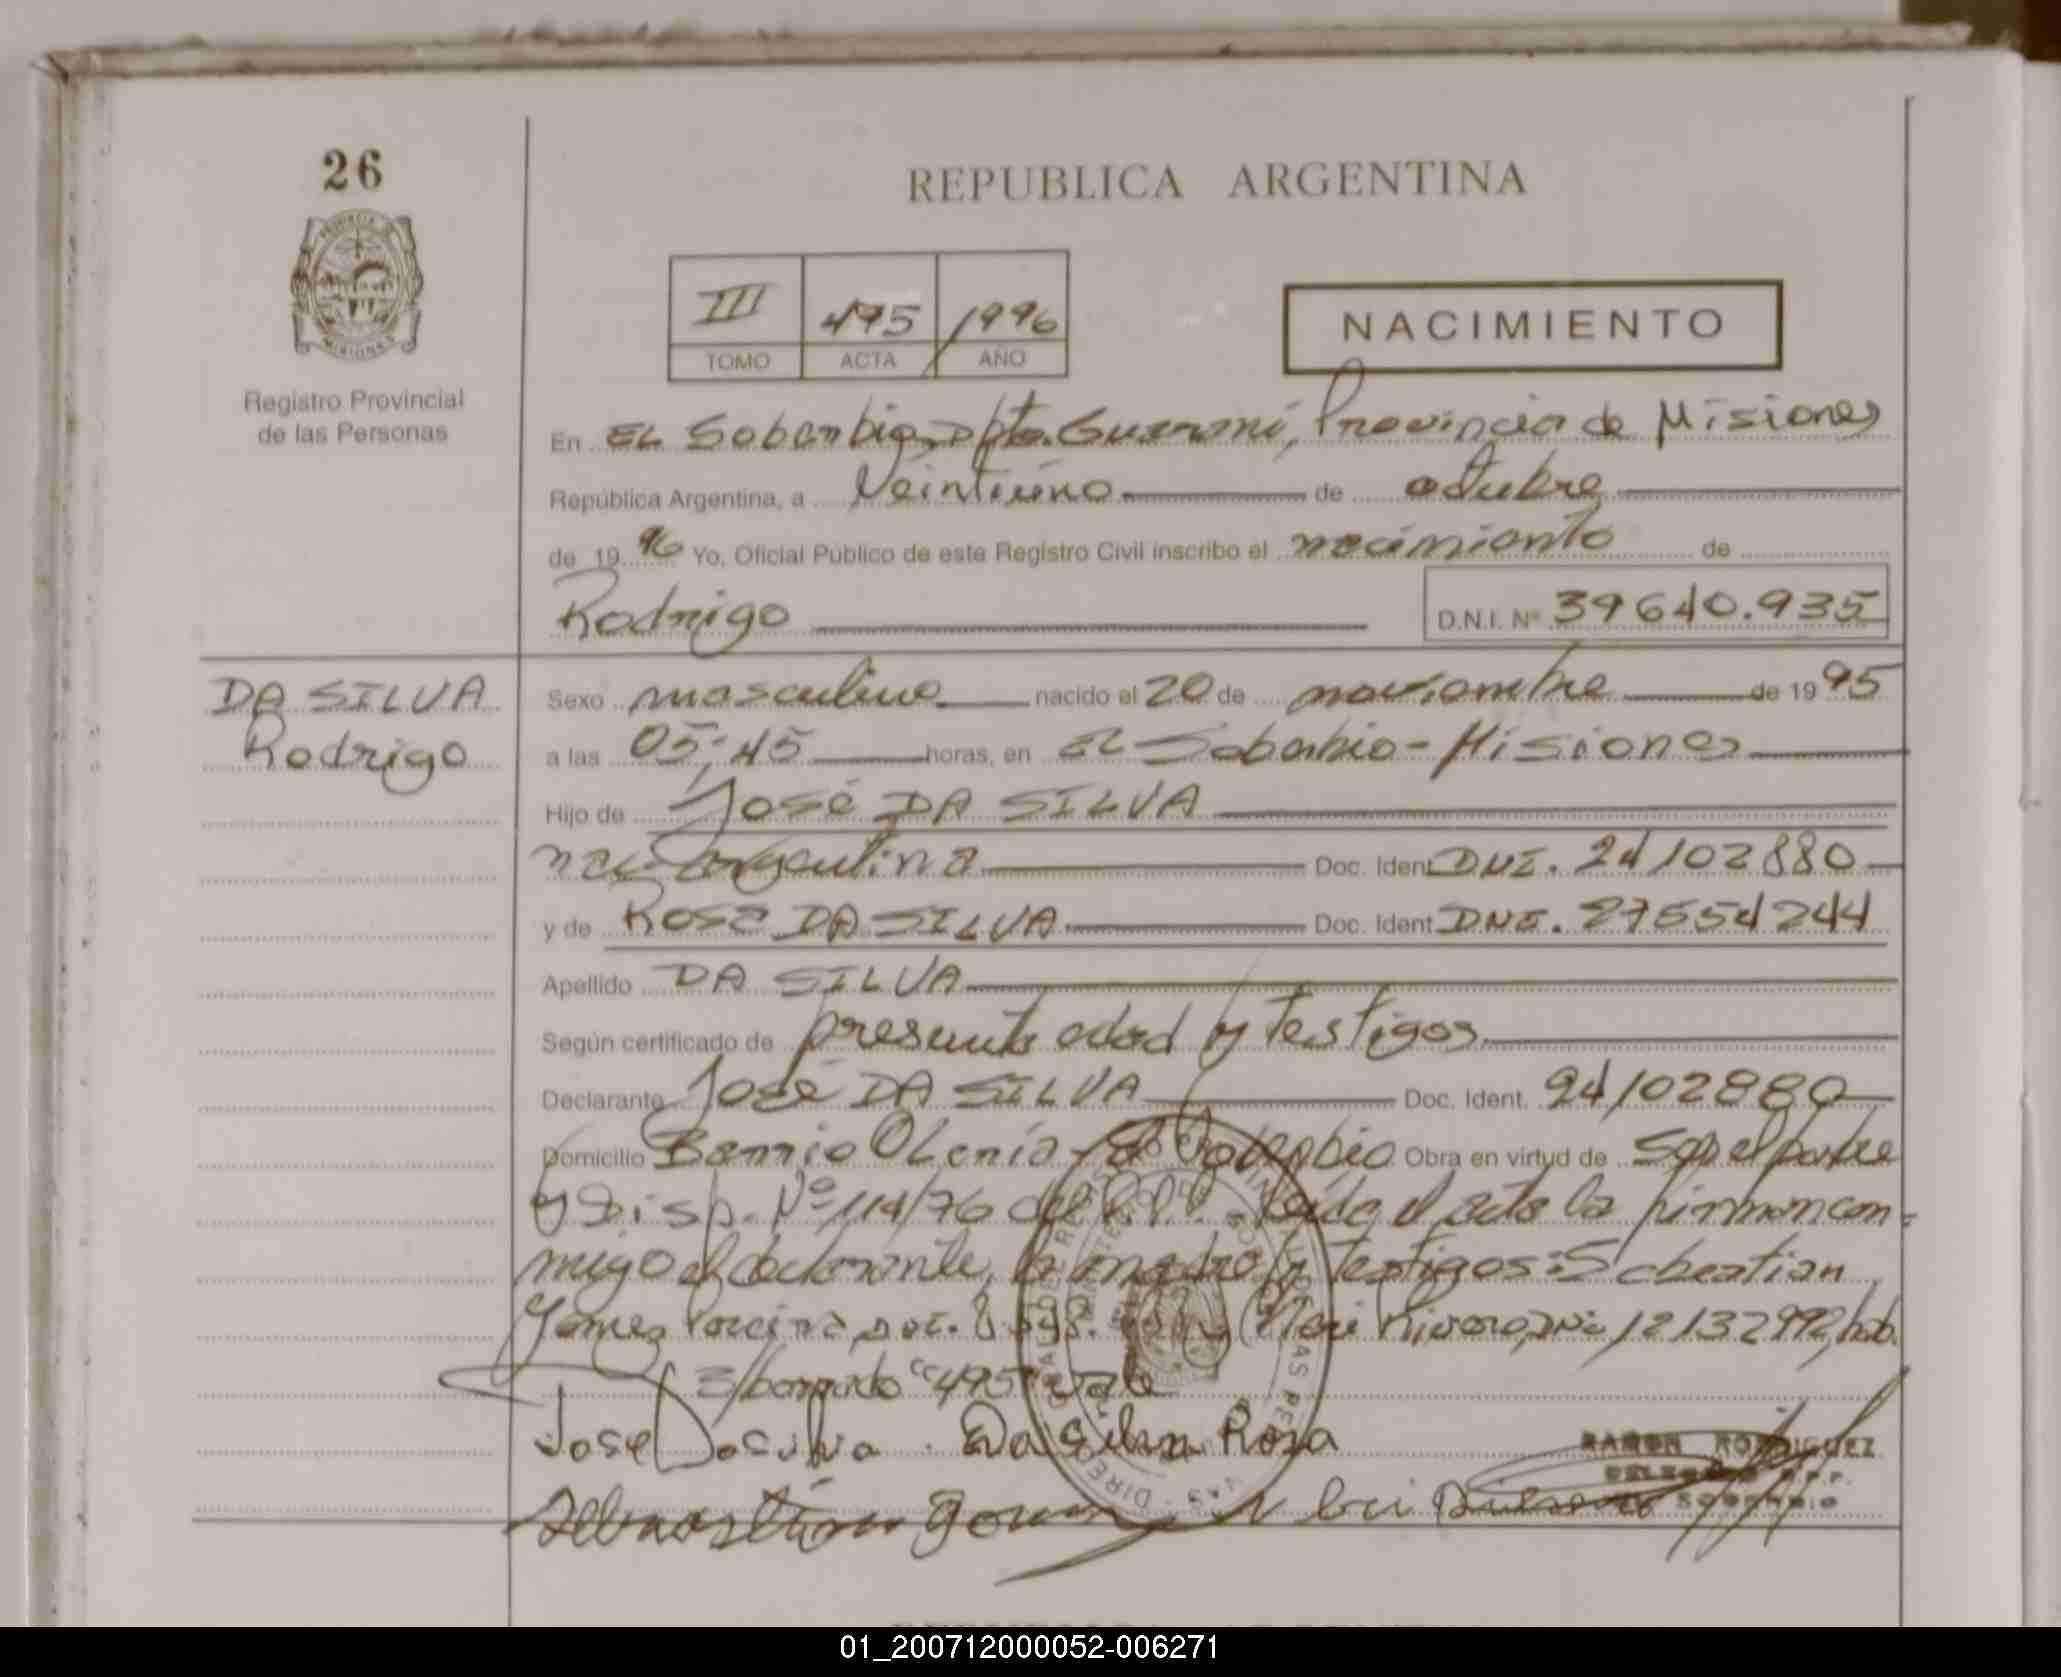 26
REPUBLICA ARGENTINA
PROVINCIA DE
MISIONES
Registro Provincial
de las Personas
III 495 1996
TOMO ACTA AÑO
NACIMIENTO
En EL Soberbio, Dpto. Guaraní, Provincia de Misiones
República Argentina, a Veintiuno de octubre
de 19 96 Yo, Oficial Público de este Registro Civil inscribo el nacimiento de
Rodrigo D.N.I. Nº 39640.935
DA SILVA
Rodrigo
Sexo masculino nacido el 20 de noviembre de 19 95
a las 05:45 horas, en EL Soberbio - Misiones
Hijo de José DA SILVA
nac. argentina Doc. Ident DNI. 24102880
y de ROSA DA SILVA Doc. Ident DNI. 27554244
Apellido DA SILVA
Según certificado de presunta edad y testigos
Declarante José DA SILVA Doc. Ident. 24102880
Domicilio Barrio - El Soberbio Obra en virtud de ser el padre
y Disp. Nº 114/76 del Leída el acta la firman con-
migo el declarante, la madre y testigos: Sebastian
Gomez DNI. 8 y Rivero, DNI 12132992, hab.
E/borrado "495" vale
Jose Dasilva Da Silva Rosa
RAMON RODRIGUEZ
DELEGADO R.P.P.
El Soberbio
Sebastian Gomez
01_200712000052-006271